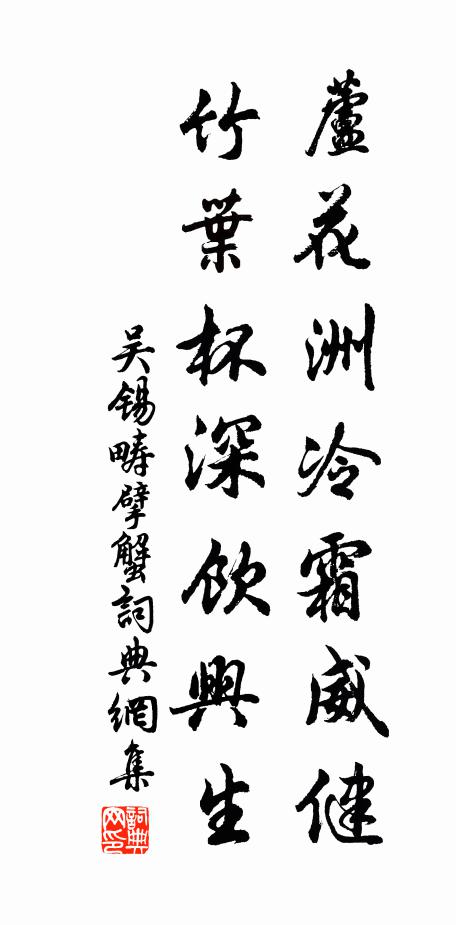 蘆花洲冷霜威健
竹葉杯深飲興生
吴锡畴擘蟹詞典網集
詞典网印